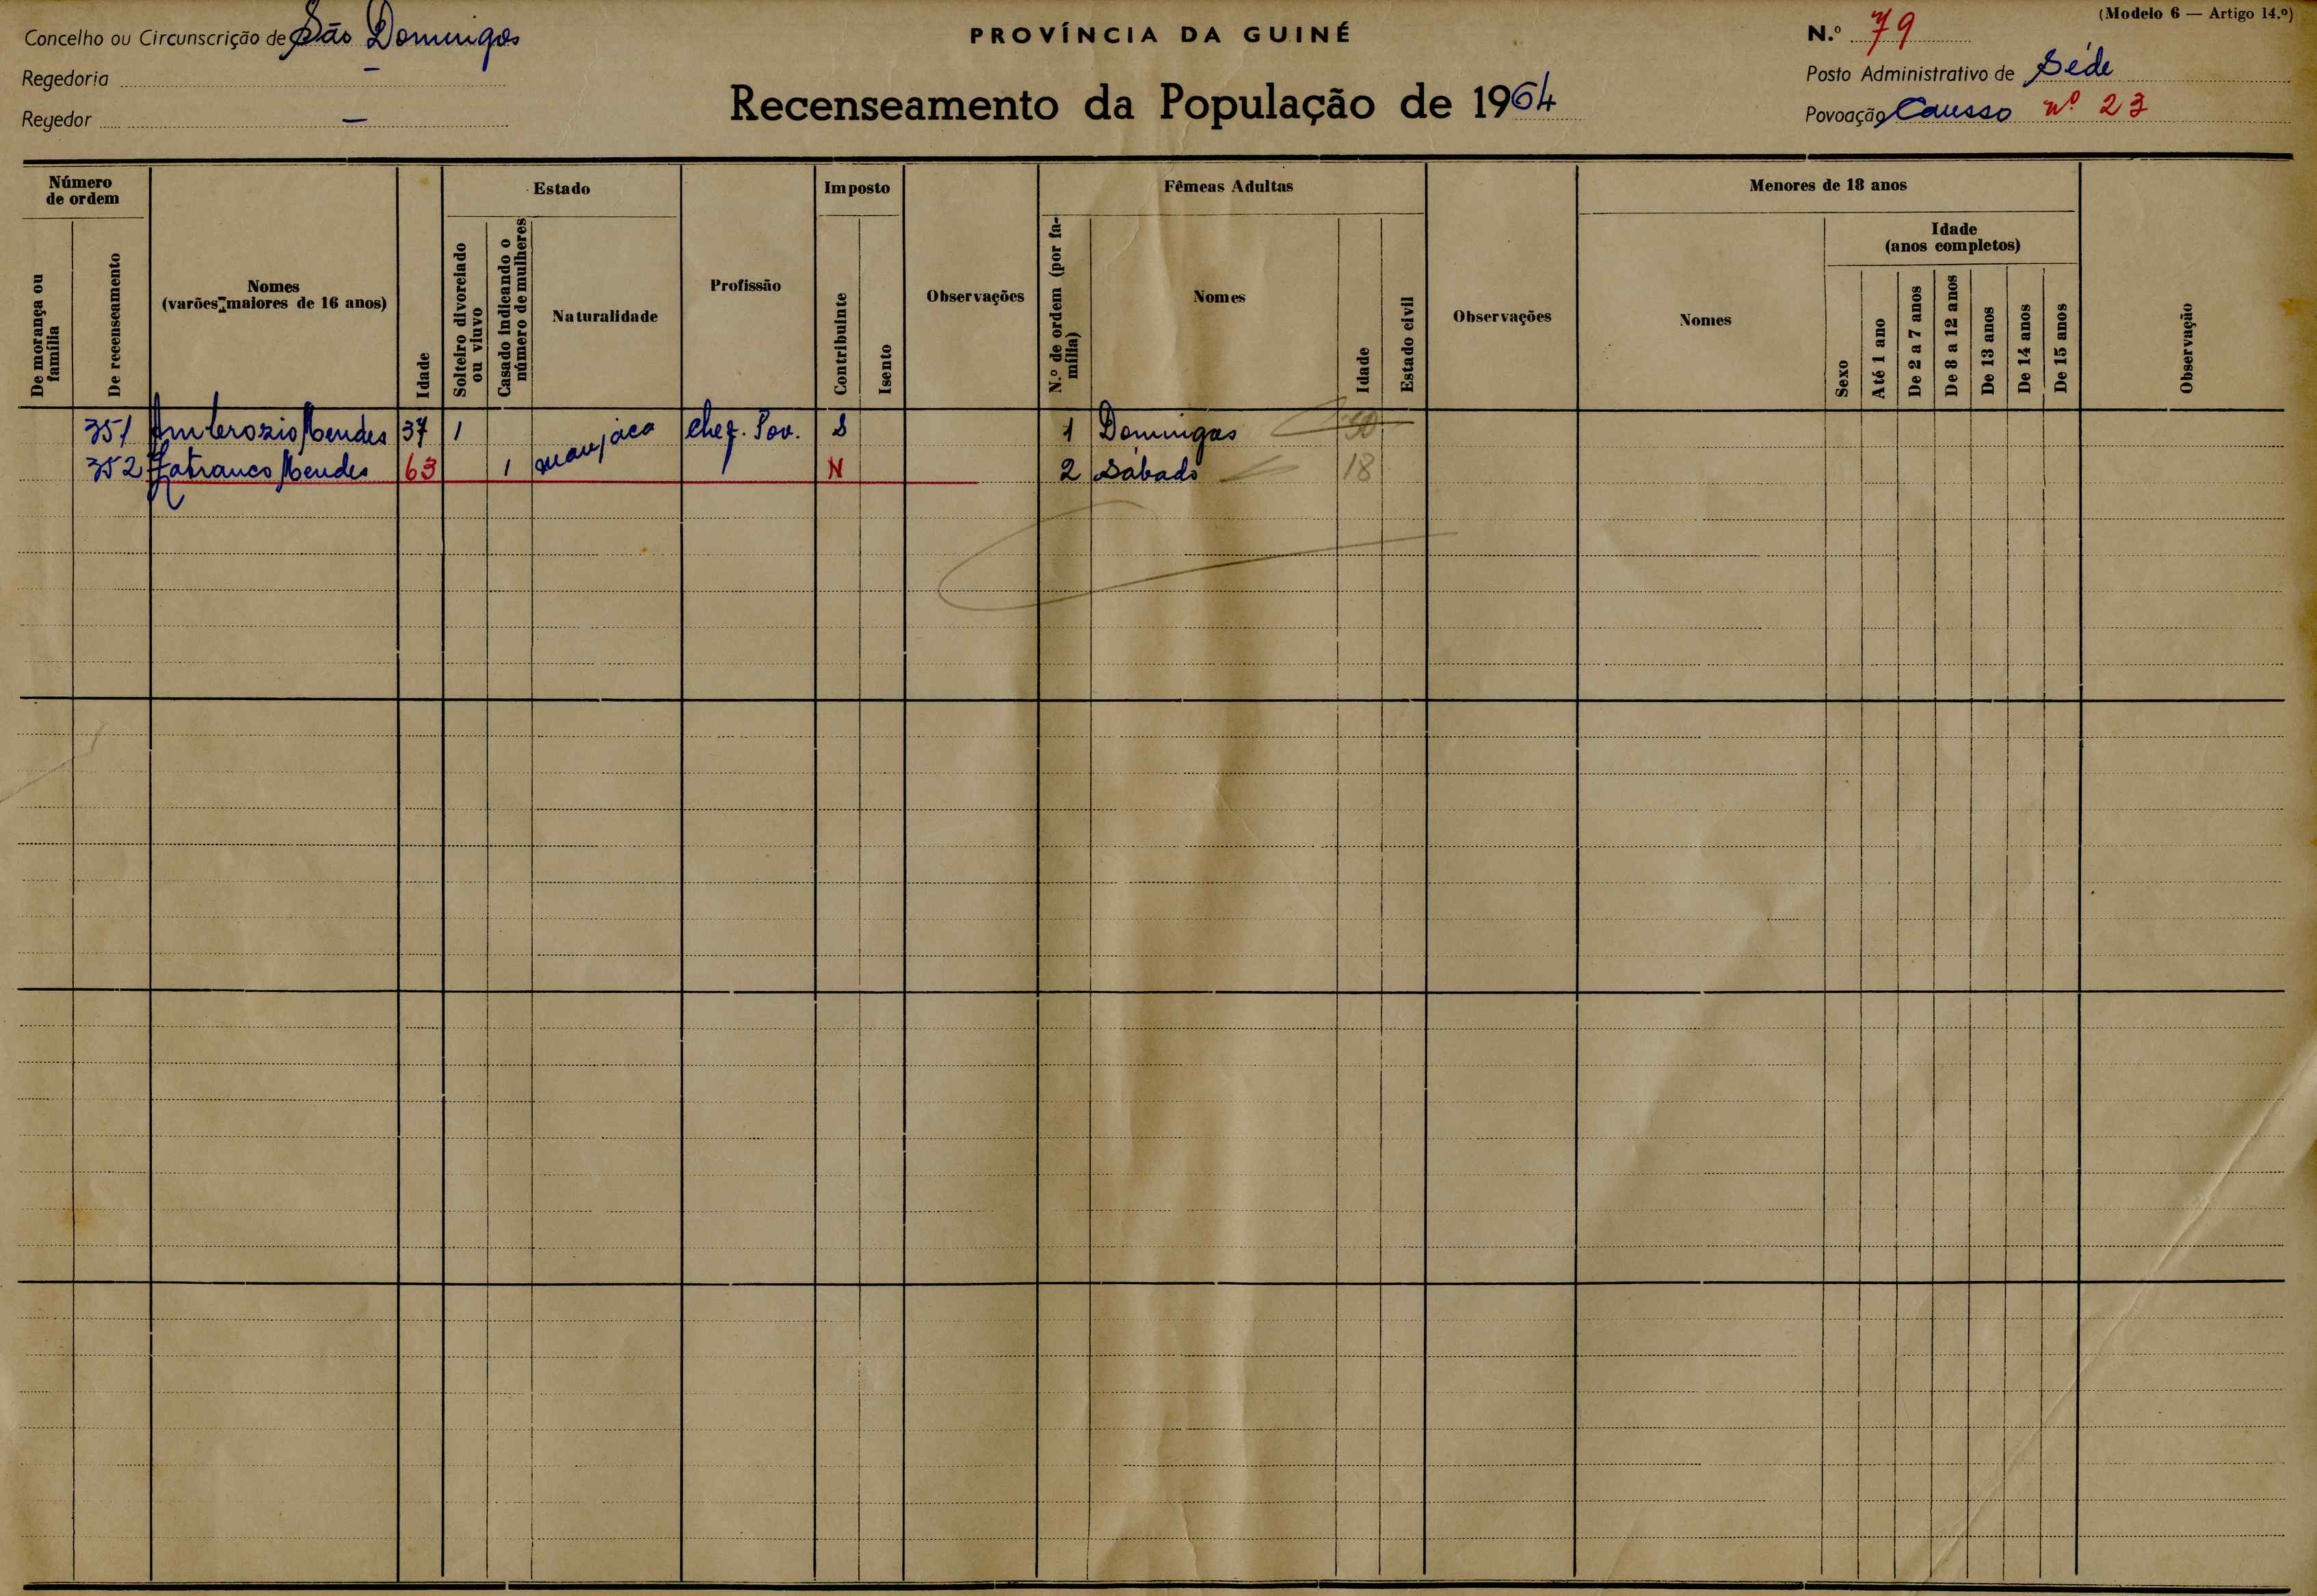 (Modelo 6 — Artigo 14.º)
Concelho ou Circunscrição de São Domingos
PROVÍNCIA DA GUINÉ
N.º 79
Regedoria —
Posto Administrativo de Séde
Recenseamento da População de 1964
Regedor —
Povoação Causso nº 23
Número de ordem
De morança ou família
De recenseamento
Nomes
(varões maiores de 16 anos)
Idade
Estado
Solteiro divorciado ou viuvo
Casado indicando o número de mulheres
Naturalidade
Profissão
Imposto
Contribuinte
Isento
Observações
Fêmeas Adultas
N.º de ordem (por família)
Nomes
Idade
Estado civil
Observações
Menores de 18 anos
Nomes
Sexo
Idade
(anos completos)
Até 1 ano
De 2 a 7 anos
De 8 a 12 anos
De 13 anos
De 14 anos
De 15 anos
Observação
351 Ambrozio Mendes 37 1 manjaca Chef. Pov. S 1 Domingas 50
352 Mendes 63 1 N 2 Sábado 18